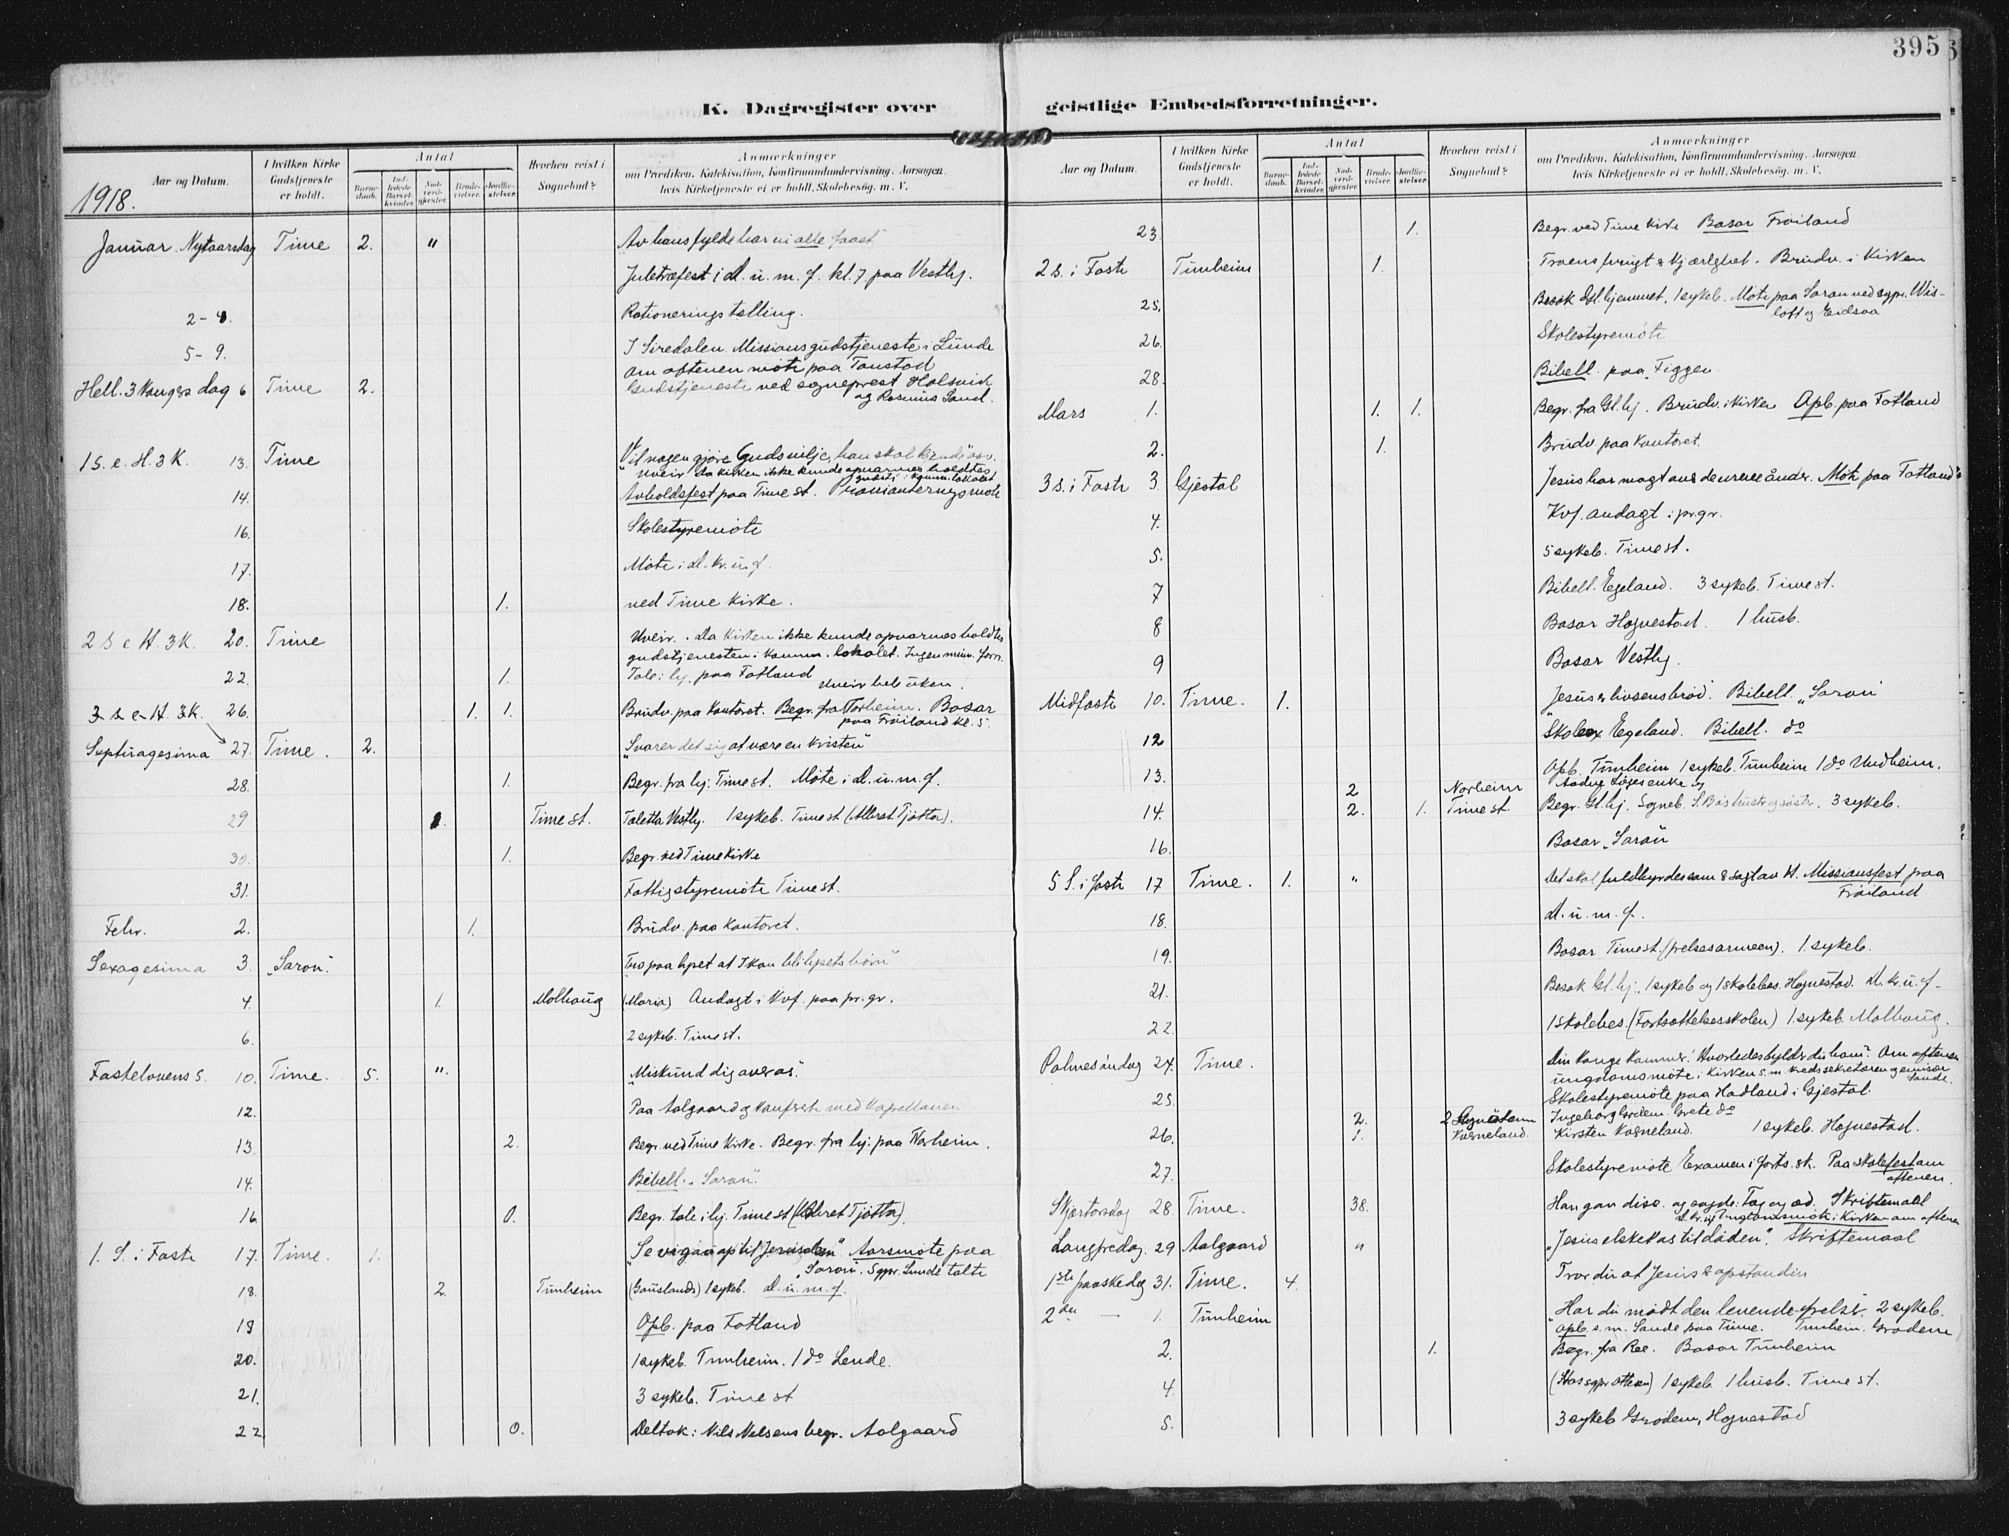 395
K. Dagregister over geistlige Embedsforretninger.
Aar og Datum.
I hvilken Kirke Gudstjeneste er holdt.
Antal
Barnedaab.
Indledede Barselkvinder.
Nadverdgjester.
Brudevielser.
Jordfæstelser.
Hvorhen reist i Sognebud?
Anmærkninger
om Prædiken, Katekisation, Konfirmandundervisning, Aarsagen
hvis Kirketjeneste ei er holdt, Skolebesøg, m. V.
1918.
Januar Nytaarsdag Time 2. " Av hans fylde har vi alle faaet
Juletræfest i d. u. m. f. kl. 7 paa Vestly.
2-4. Rationeringstelling.
5-9. I Siredalen. Missionsgudstjeneste i Lunde
om aftenen møte paa Tonstad
Hell. 3 Kongers dag 6 Time 2. Gudstjeneste ved sogneprest Holsvik
og Rasmus Sand.
1 S. e. H. 3 K. 13. Time Vil nogen gjøre Guds vilje, han skal kjende osv.
Uveir da kirken ikke kunde opvarmes holdtes
gudstj. i komm. lokalet
14. Avholdsfest paa Time st. Provianteringsmøte
16. Skolestyremøte
17. Møte i d. kr. u. f.
18. 1. ved Time Kirke.
2 S. e. H. 3 K. 20. Time Uveir. Da Kirken ikke kunde opvarmes holdtes
gudstjenesten i komm. lokalet. Ingen min. forr.
22. 1. Tale i hj. paa Fotland
Uveir hele uken.
3 S. e. H. 3 K. 26. 1. 1. Brudv. paa Kontoret. Begr. fra Torheim. Basar
paa Frøiland kl. 5.
Septuagesima 27. Time. 2. "Svarer det sig at være en kristen"
28. 1. Begr. fra hj. Time st. Møte i d. u. m. f.
29 1. Time st. Taletta Vestly. 1 sykeb. Time st (Albret Tjøtta).
30. 1. Begr. ved Time Kirke
31. Fattigstyremøte Time st.
Febr. 2. 1. Brudv. paa Kontoret.
Sexagesima 3. "Saron". "Tro paa lyset at I kan bli lysets børn"
4. 1. Molhaug (Maria) Andagt i Kvf. paa pr. gr.
6. 2 sykeb. Time st.
Fastelavens S. 10. Time. 5. ". "Miskund dig over os".
12. Paa Aalgaard og konferet med Kapellanen
13. 2. Begr. ved Time Kirke. Begr. fra hj. paa Norheim.
14. Bibell. "Saron".
16. 0. Begr. tale i hj. Time st (Albret Tjøtta).
1. S. i Faste 17. Time. 1. "Se vi gaar op til Jerusalem" Aarsmøte paa
"Saron". Sgpr. Lunde talte
18. 2. Tunheim (Gauslands) 1 sykeb. d. u. m. f.
19 Opb. paa Fotland
20. 1 sykeb. Tunheim. 1 do Lende.
21. 3 sykeb. Time st
22. 0. Deltok i Nils Nelsens begr. Aalgaard
Aar og Datum.
I hvilken Kirke Gudstjeneste er holdt.
Antal
Barnedaab.
Indledede Barselkvinder.
Nadverdgjester.
Brudevielser.
Jordfæstelser.
Hvorhen reist i Sognebud?
Anmærkninger
om Prædiken, Katekisation, Konfirmandundervisning, Aarsagen
hvis Kirketjeneste ei er holdt, Skolebesøg, m. V.
23. 1. Begr. ved Time Kirke Basar Frøiland
2 S. i Faste Tunheim 1. Troens frugt er kjærlighet. Brudv. i Kirken
25. Besøk Gl. hjemmet, 1 sykeb. Møte paa Saron ved sgpr. Wis-
løff og Eidsaa
26. Skolestyremøte
28. Bibell. paa Tiggen
Mars 1. 1. 1. Begr. fra Gl. hj. Brudv. i kirken Opb. paa Fotland
2. 1. Brudv. paa Kontoret.
3 S. i Faste 3. Gjestal Jesus har magt over de urene ånder. Møte paa Fotland
4. Kvf. andagt i pr. gr.
5. 5 sykeb. Time st.
7 Bibell. Egeland. 3 sykeb. Time st.
8 Basar Hognestad. 1 husb.
9 Basar Vestly.
Midfaste 10. Time. 1. "Jesus er livsens brød". Bibell. "Saron"
12 Skoleex. Egeland. Bibell. do
13. 2 Norheim Opb. Tunheim 1 sykeb. Tunheim 1 do Undheim.
14. 2. 1. Time st. Begr. Gl. hj. Sogneb. S. Bøs hustr. og søster. 3 sykeb.
16. Basar "Saron"
5 S. i faste 17 Time. 1. " Det skal fuldbyrdes som er sagt av H. Missionsfest paa
Frøiland
18. d. u. m. f.
19. Basar Time st. (frelsesarmeen). 1 sykeb.
21. Besøk Gl. hj., 1 sykeb og 1 skolebes. Hognestad. d. kr. u. f.
22. 1 skolebes. (Fortsættelsesskolen) 1 sykeb. Molhaug.
Palmesøndag 24. Time. Din Konge kommer! Hvorledes hylder du ham? Om aftenen
ungdomsmøte i Kirken s. m. kredssekretæren og emissær
Sande.
25. Skolestyremøte paa Hadland i Gjestal
26. 2. 1. Ingeborg Grødem. Grete do
Kogneland. Kirsten Kogneland. 1 sykeb. Hognestad.
27. Skolestyremøte Examen i forts. sk. Paa skolefest om
aftenen.
Skjærtorsdag 28. Time. 38. Han gav disc. og sagde: Tag og æd. Skriftemaal
d. kr. u. f. Ungdomsmøte i Kirken om aftenen
Langfredag. 29 Aalgaard " "Jesus elsket os til døden". Skriftemaal
1ste paaskedag 31. Time. 4. Tror du at Jesus er opstanden
2den — 1. Tunheim Har du møtt den levende frelser 2 sykeb.
Opb. s. m. Sande paa Time. Tunheim. Grødem
2. 1. Begr. fra Ree. Basar Tunheim
4. 1 sykeb 1 husb. Time st.
5. 3 sykeb Grødem, Hognestad